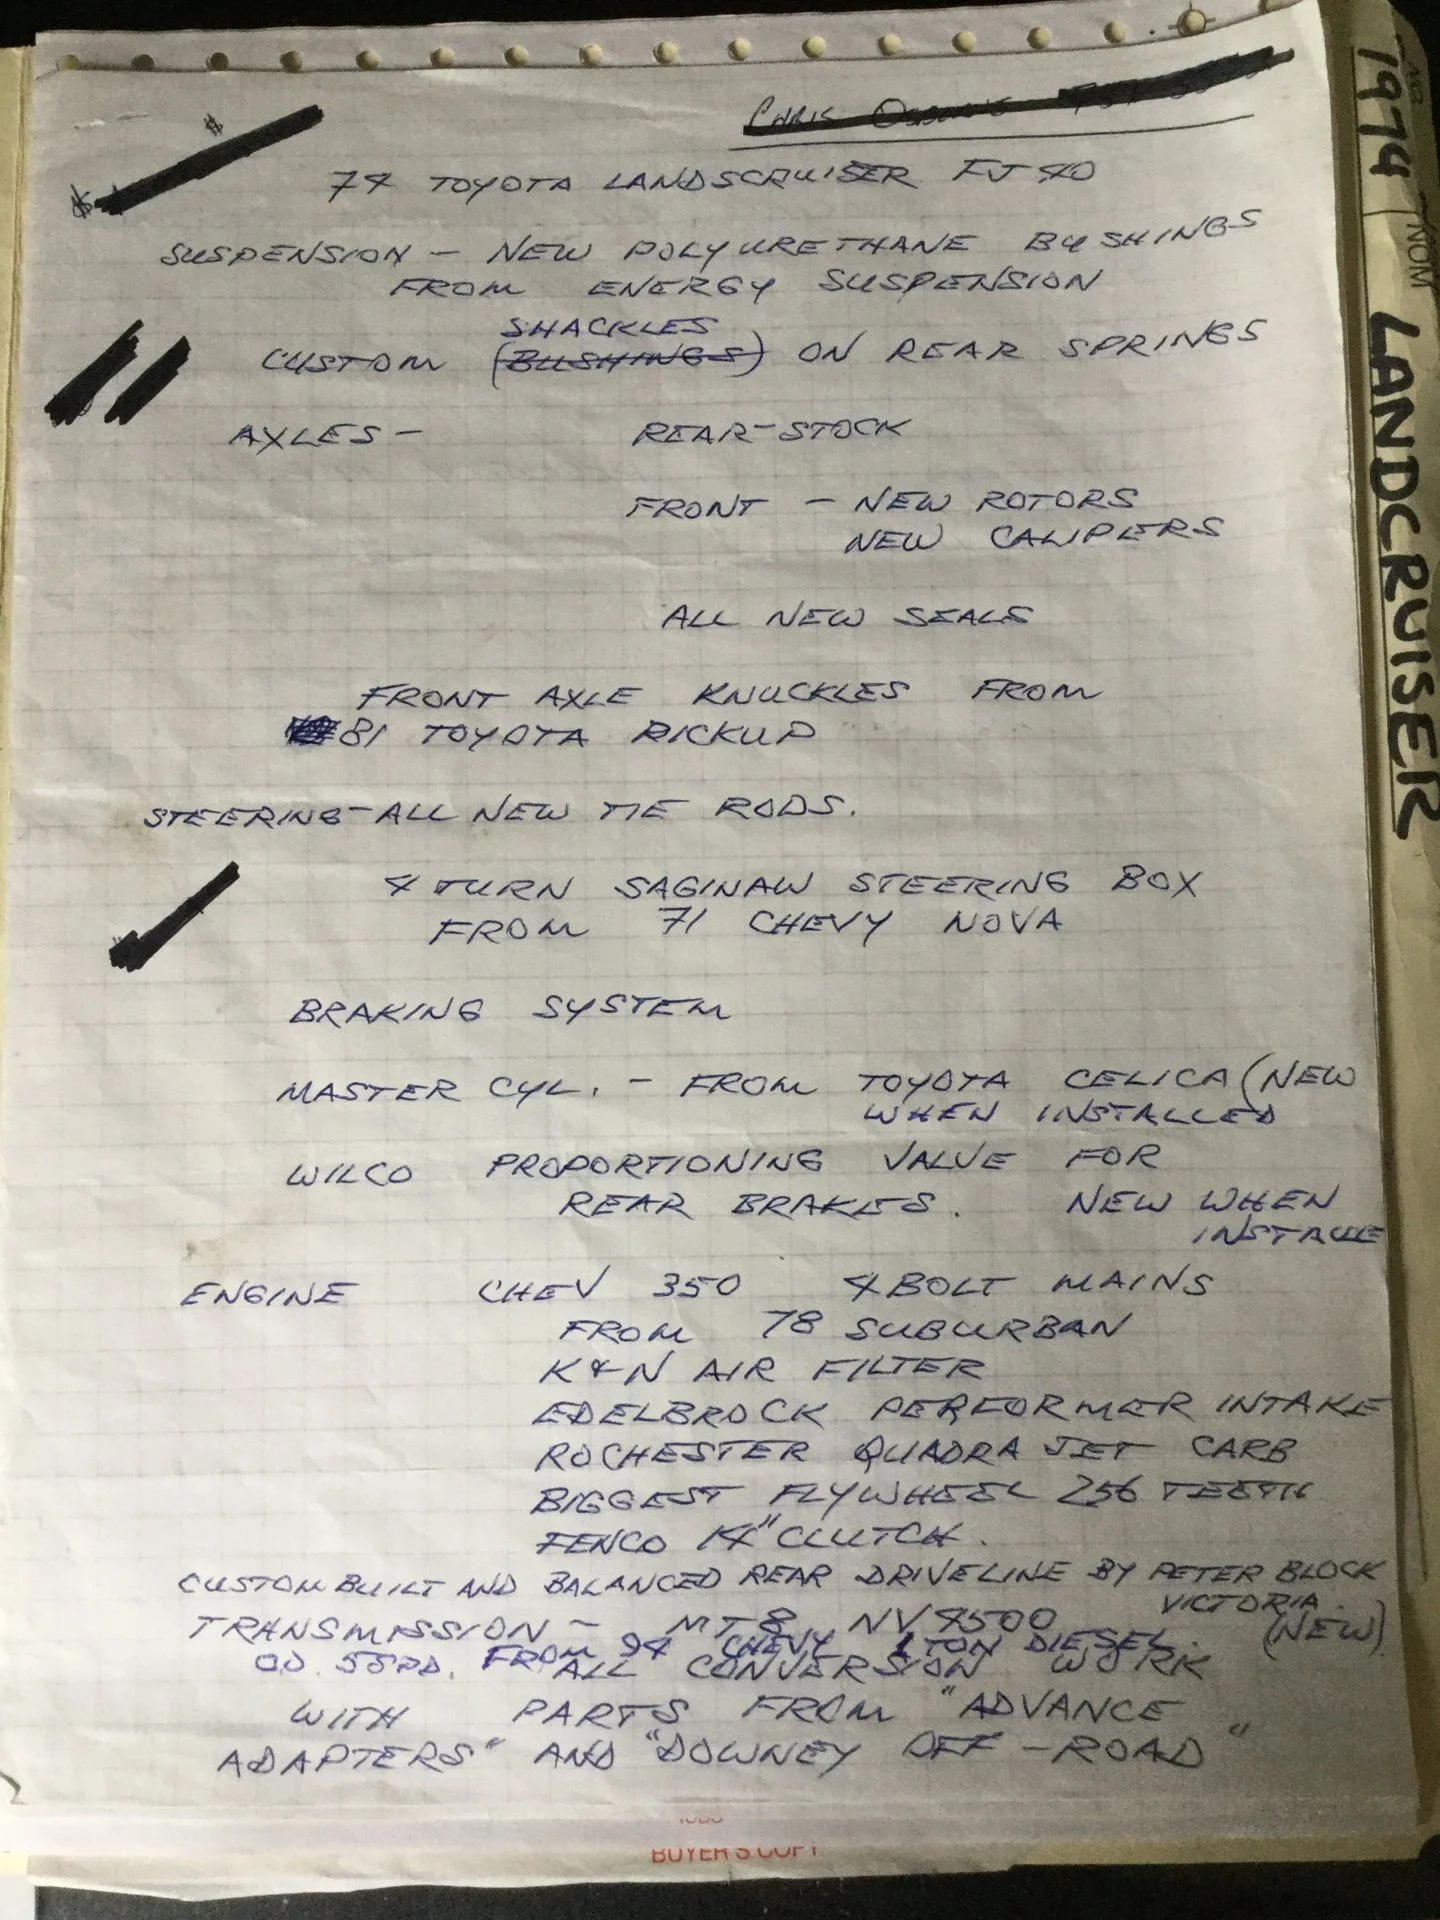 74 TOYOTA LANDSCRUISER FJ40
SUSPENSION - NEW POLYURETHANE BUSHINGS
FROM ENERGY SUSPENSION
SHACKLES
CUSTOM (BUSHINGS) ON REAR SPRINGS
AXLES - REAR-STOCK
FRONT - NEW ROTORS
NEW CALIPERS
ALL NEW SEALS
FRONT AXLE KNUCKLES FROM
81 TOYOTA PICKUP
STEERING - ALL NEW TIE RODS.
4 TURN SAGINAW STEERING BOX
FROM 71 CHEVY NOVA
BRAKING SYSTEM
MASTER CYL. - FROM TOYOTA CELICA (NEW
WHEN INSTALLED
WILCO PROPORTIONING VALVE FOR
REAR BRAKES. NEW WHEN
INSTALLE
ENGINE CHEV 350 4 BOLT MAINS
FROM 78 SUBURBAN
K&N AIR FILTER
EDELBROCK PERFORMER INTAKE
ROCHESTER QUADRA JET CARB
BIGGEST FLYWHEEL 256 TEETH
FENCO 14" CLUTCH.
CUSTOM BUILT AND BALANCED REAR DRIVELINE BY PETER BLOCK
VICTORIA.
TRANSMISSION - MT8 NV4500 (NEW)
O.D. 5SPD. FROM 94 CHEVY 1 TON DIESEL.
ALL CONVERSION WORK
WITH PARTS FROM "ADVANCE
ADAPTERS" AND "DOWNEY OFF-ROAD"
BUYER'S COPY
1974 LANDCRUISER